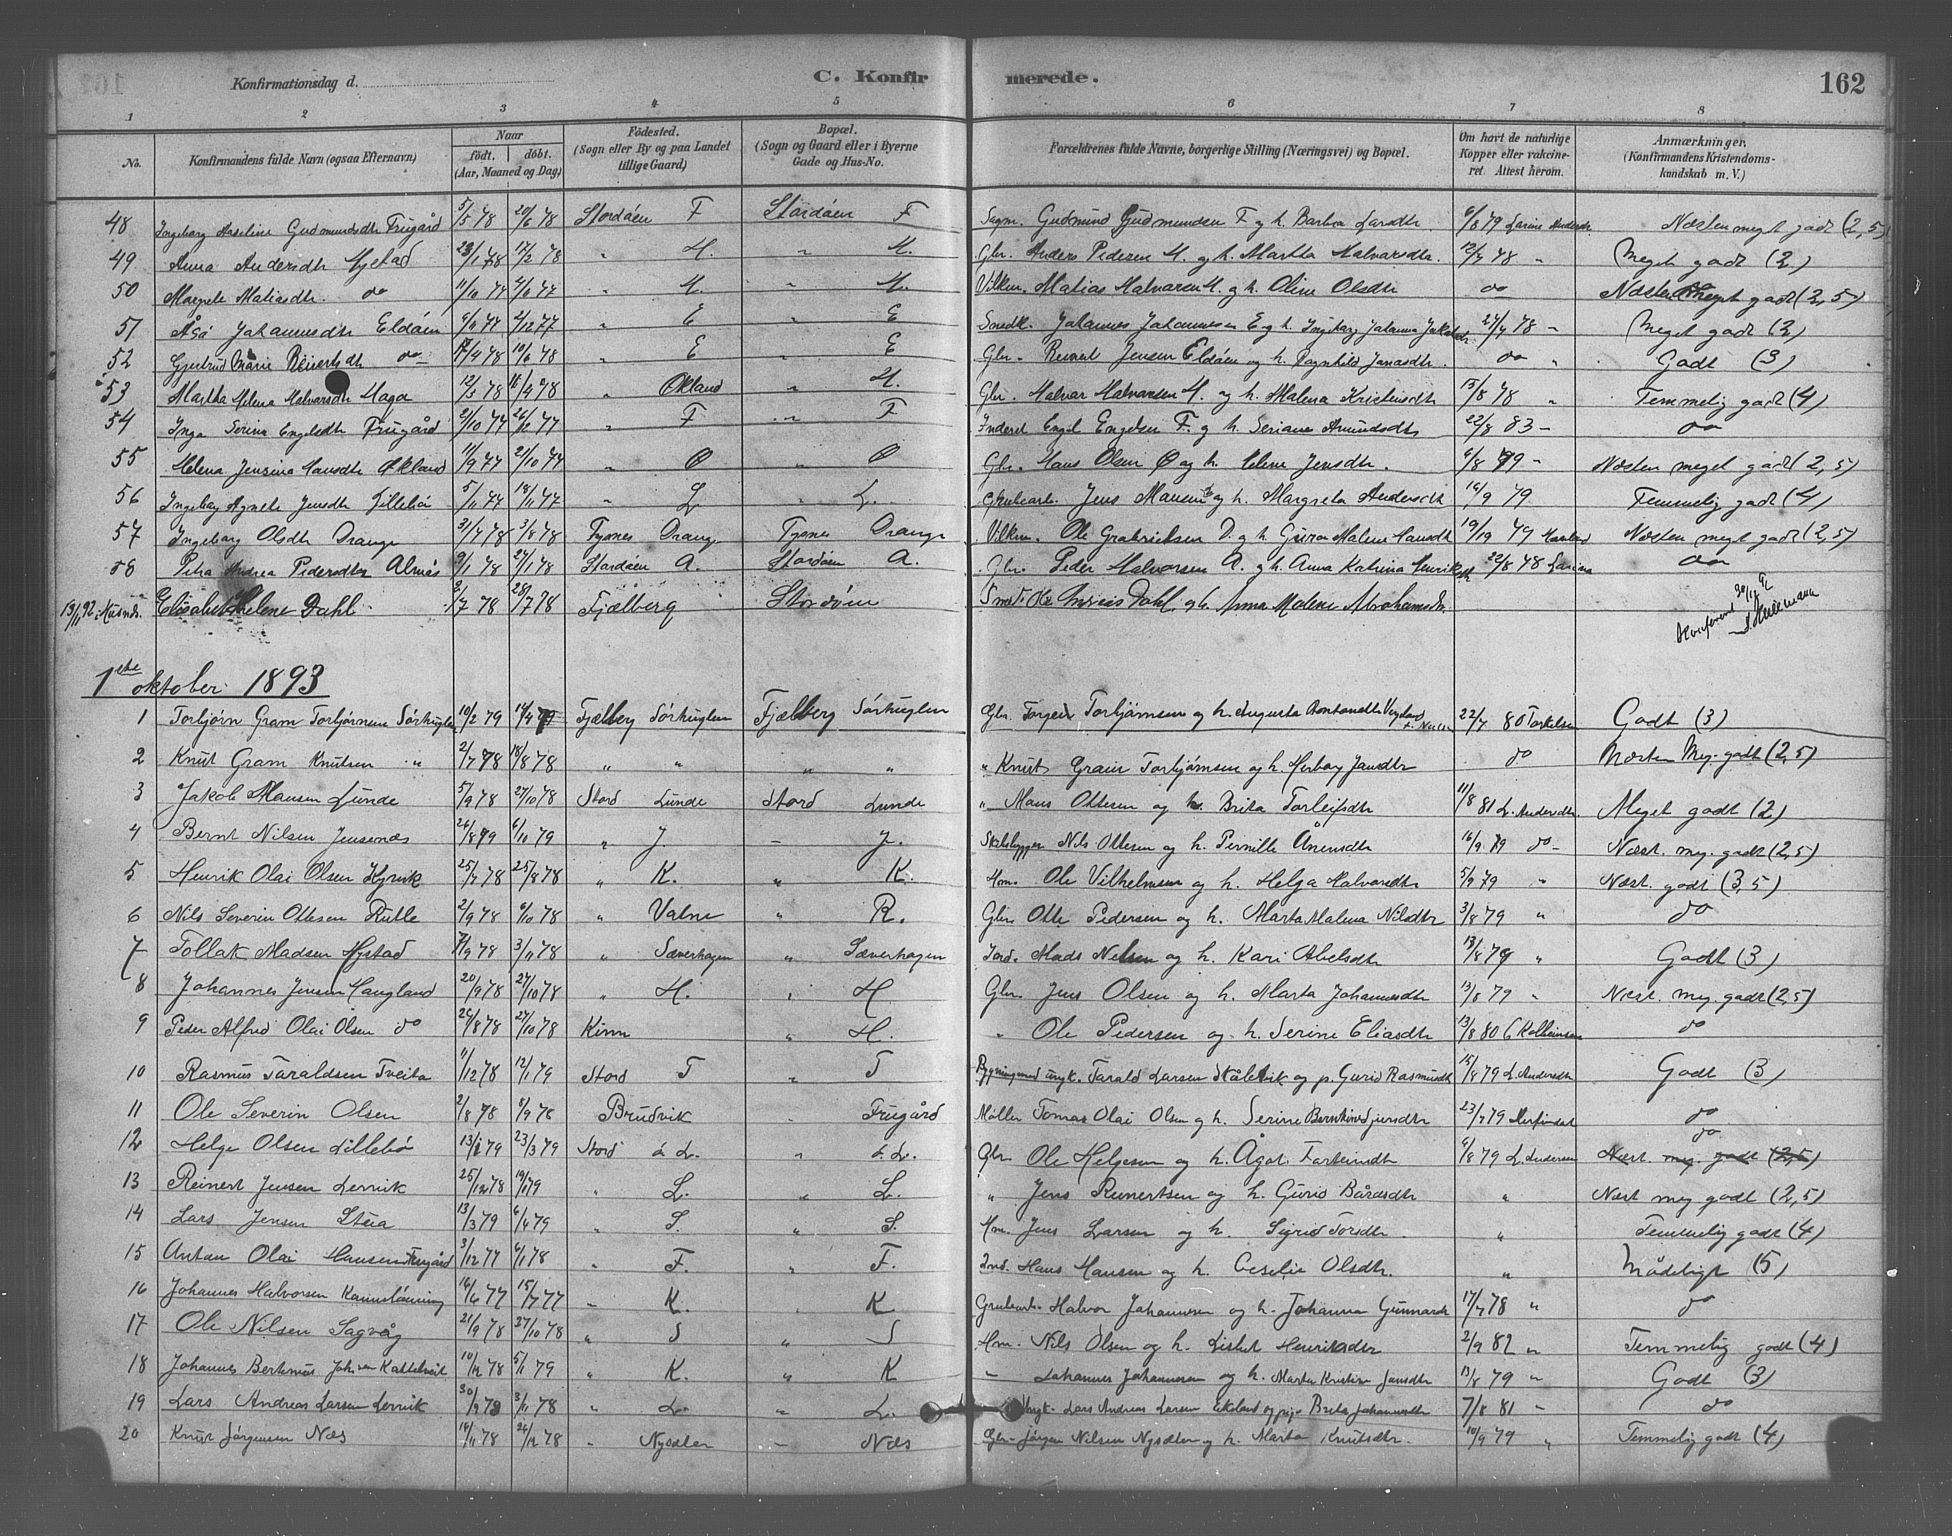 Konfirmationsdag d.
C. Konfirmerede.
162
1 2 3 4 5 6 7 8
No. Konfirmandens fulde Navn (ogsaa Efternavn) Naar født. døbt. (Aar, Maaned og Dag) Fødested. (Sogn eller By og paa Landet tillige Gaard) Bopæl. (Sogn og Gaard eller i Byerne Gade og Hus-No. Forældrenes fulde Navne, borgerlige Stilling (Næringsvei) og Bopæl. Om havt de naturlige Kopper eller vakcineret. Attest herom. Anmærkninger. (Konfirmandens Kristendomskundskab m. V.)
48 Ingeborg Gudmundsdtr Frugård 5/5 78 20/6 78 Stordøen F Stordøen F Gudmund Gudmundsen F og h. Barbra Larsdtr. 6/8 79 Larine Andersdtr. Næsten meget godt (2,5)
49 Anna Andersdtr Hystad 23/1 78 17/2 78 " H. " H. Gbr. Anders Pedersen H. og h. Martha Halvorsdtr. 12/7 78 " Meget godt (2)
50 Margrete Matiasdtr. do " H. " H. Matias Halvorsen H. og h. Oline Olsdtr do Næsten meget godt (2,5)
51 Åsa Johannesdtr Eldøen 2/12 77 " E " E Johannes Johannesen E og h. Ingeborg Johanna 24/7 78 " Meget godt (2)
52 Gjertrud Marie Reinertsdtr do 10/6 78 " E " E Gbr. Reinert Jensen Eldøen og h. Ragnhild do " Godt (3)
53 Martha Helena Halvorsdtr Haga 12/3 78 " Økland " H. Gbr. Halvor Halvorsen H. og h. Malena Kristensdtr 13/8 78 " Temmelig godt (4)
54 Inga Serina Engelsdtr Frugård 2/10 77 26/12 77 " F " F Inderst Engel Engelsen F. og h. Seriane Amundsdtr 22/8 83 - do
55 Helena Jensina Hansdtr Økland 11/9 77 21/10 77 " Ø " Ø Gbr. Hans Olsen Ø og h. Helene Jensdtr. 6/8 79 " Næsten meget godt (2,5)
56 Ingeborg Agnete Jensdtr Lillebø 5/11 77 18/11 77 " L " L. Grubearb. Jens Hansen og h. Margreta Andersdtr 16/9 79. Temmelig godt (4)
57 Ingeborg Olsdtr Drange 31/7 78 3/8 78 Tysnes Drange Tysnes Drange Ole Gabrielsen D. og h. Guron Malene Hansdtr 79 Næsten meget godt (2,5)
58 Petra Andrea Pedersdtr Almås 9/1 78 27/1 78 Stordøen A. Stordøen A. Gbr. Peder Halvorsen A. og h. Anna Katrina Henriksdtr 22/8 78 Larina do
13/11 92 Elisabet Helene Dahl 2/7 78 28/7 78 Fjælberg Stordøen Dahl og h. Anna Malene Abrahamsdtr.
1ste oktober 1893
1 Torbjørn Gram Torbjørnsen Sørhuglen 10/2 79 Fjælberg Sørhuglen Fjælberg Sørhuglen Gbr. Torgeir Torbjørnsen og h. Augusta 22/7 80 Torkelsen Godt (3)
2 Knut Gram Knutsen " 2/7 78 18/8 78 " " " " " Knut Gram Torbjørnsen og h. Herborg Jansdtr do Næsten Meg. godt (2,5)
3 Jakob Hansen Lunde 5/9 78 27/10 78 Stord Lunde Stord Lunde " Hans Ottesen og h. Brita Torleifsdtr 11/8 81 L. Andersdtr Meget godt (2)
4 Bernt Nilsen Jensenæs 26/8 79 6/10 79 " J. - J. Skibsbygger Nils Ottesen og h. Pernille Ånensdtr 16/9 79 do - Næst. meg. godt (2,5)
5. Henrik Olai Olsen Kyrvik 25/7 78 25/8 78 " K. " K. Hm. Ole Vilhelmsen og h. Helga Halvorsdtr 5/9 79 " Næst. godt (3,5)
6 Nils Severin Ottesen Rutle 2/9 78 6/10 78 " Valne " R. Gbr. Otte Pedersen og h. Marta Malena Nilsdtr 3/8 79 " do
7 Tollak Madsen Hystad 7/9 78 3/11 78 " Sæverhagen " Sæverhagen Ind. Mads Nelsen og h. Kari Abelsdtr 13/8 79 " Godt (3)
8 Johannes Jensen Haugland 20/9 78 27/10 78 " H. " H Gbr. Jens Olsen og h. Marta Johannesdtr 13/8 79 " Næst. meg. godt (2,5)
9 Peder Alfred Olai Olsen do 26/8 78 27/10 78 Kinn " H. " Ole Pedersen og h. Serine Eliasdtr 13/8 80 Kolbeinsen do
10 Rasmus Taraldsen Tveita 11/12 78 12/1 79 Stord T " T Tarald Larsen Skålevik og p. Gurid Rasmusdtr 15/8 79 L. Andersdtr Godt (3)
11 Ole Severin Olsen 2/8 78 8/9 78 Brudvik " Frugård Møller Tomas Olai Olsen og h. Serine 23/7 79 do
12 Helge Olsen Lillebø 13/2 79 23/3 79 Stord L. " L. Gbr. Ole Helgesen og h. Ågot Torbeinsdtr 6/8 79 L. Andersen Næst. meg. godt (2,5) do
13 Reinert Jensen Lervik 25/12 78 19/1 79 " L. " L. " Jens Reinertsen og h. Gurid Bårdsdtr " Næst meg godt (2,5)
14 Lars Jensen Stuva 13/3 79 6/4 79 " S. " S. Hm. Jens Larsen og h. Sigrid Torsdtr. " Temmelig godt (4)
15 Antan Olai Hansen Frugård 3/12 77 6/1 78 " F. " F. Ind. Hans Hansen og h. Ceselie Olsdtr. " Mådeligt (5)
16 Johannes Halvorsen 16/6 77 15/7 77 " K. " K Grubearb. Halvor Johannesen og h. Johanna Gunnarsdtr 17/7 78 " do
17 Ole Nilsen Sagvåg 21/9 78 27/10 78 " S " S Hm. Nils Olsen og h. Lisbet Henriksdtr 2/9 82 " Temmelig godt (4)
18 Johannes Bertinus Johsen Kattelvik 10/12 78 5/1 79 " K. " K " Johannes Johannesen og h. Marta Kristine Jansdtr 13/8 79 " Godt (3)
19 Lars Andreas Larsen Lervik 30/9 78 3/11 78 " L. " L. Ungk. Lars Andreas Larsen Eikeland og pige Brita Johannesdtr 7/8 81 " do
20 Knut Jørgensen Næs 14/11 78 26/12 78 " Nysæter - Næs Gbr. Jørgen Nilsen Nysæter og h. Marta Knutsdtr. 10/9 79 " Temmelig godt (4)